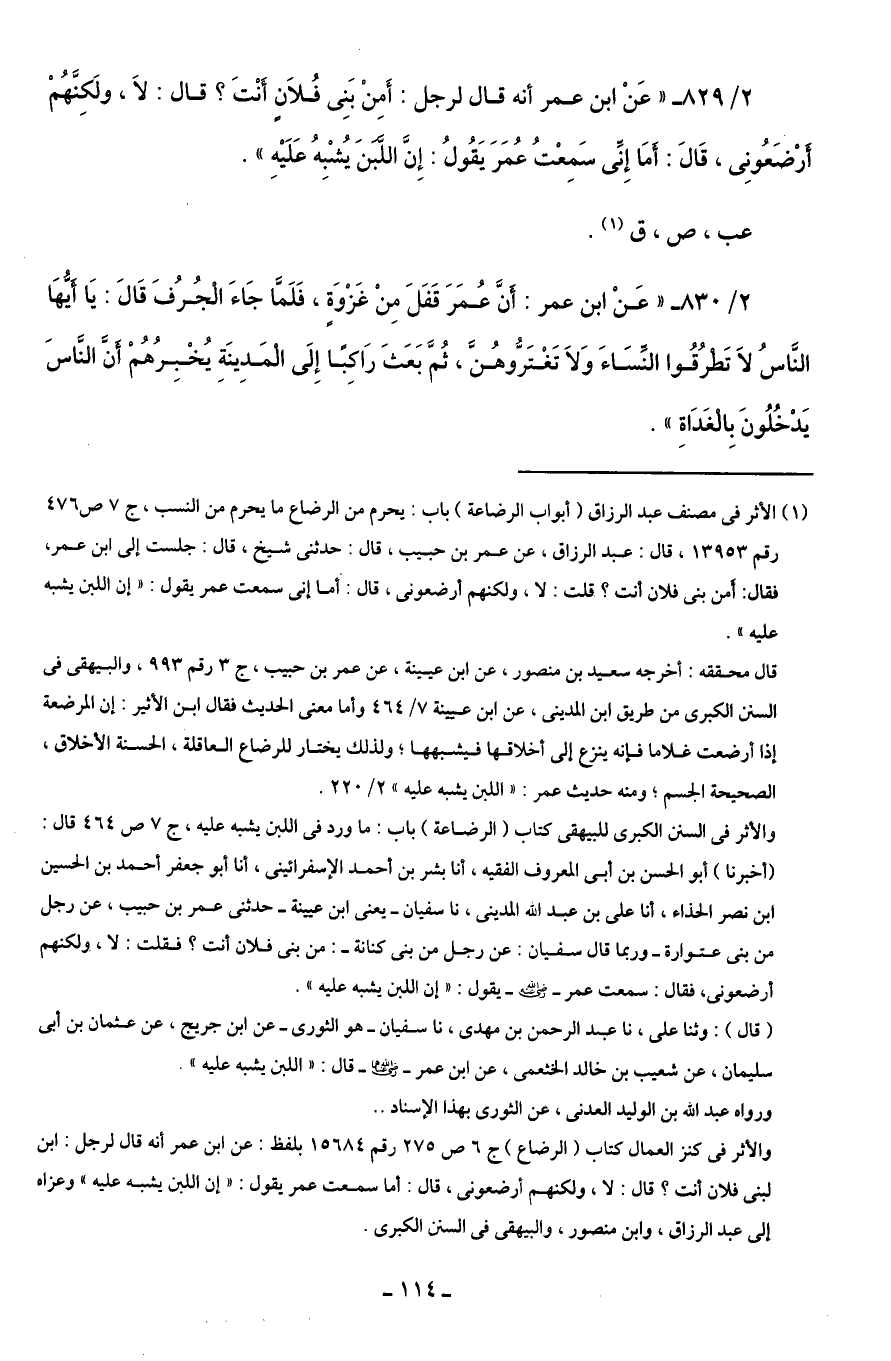 ٢/ ٨٢٩ـ « عَنْ ابن عمر أنه قال لرجل : أَمِنْ بَنِى فُلاَنٍ أَنْتَ ؟ قال : لاَ ، ولَكِنَّهُمْ
أَرْضَعُونِى ، قَالَ : أَمَا إِنِّى سَمِعْتُ عُمَرَ يَقُولُ : إِنَّ اللَّبَنَ يُشْبِهُ عَلَيْهِ » .
عب ، ص ، ق (١) .
٢/ ٨٣٠ـ « عَنْ ابن عمر : أَنَّ عُمَرَ قَفَلَ مِنْ غَزْوَةٍ ، فَلَمَّا جَاءَ الْجُرُفَ قَالَ : يَا أَيُّهَا
النَّاسُ لاَ تَطْرُقُوا النِّسَاءَ وَلاَ تَغْتَرُّوهُنَّ ، ثُمَّ بَعَثَ رَاكِبًا إِلَى الْمَدِينَةِ يُخْبِرُهُمْ أَنَّ النَّاسَ
يَدْخُلُونَ بِالْغَدَاةِ » .
(١) الأثر فى مصنف عبد الرزاق ( أبواب الرضاعة ) باب : يحرم من الرضاع ما يحرم من النسب ، ج ٧ ص٤٧٦
رقم ١٣٩٥٣ ، قال : عبد الرزاق ، عن عمر بن حبيب ، قال : حدثنى شيخ ، قال : جلست إلى ابن عمر،
فقال: أمن بنى فلان أنت ؟ قلت : لا ، ولكنهم أرضعونى ، قال : أما إنى سمعت عمر يقول : « إن اللبن يشبه
عليه » .
قال محققه : أخرجه سعيد بن منصور ، عن ابن عيينة ، عن عمر بن حبيب ، ج ٣ رقم ٩٩٣ ، والبيهقى فى
السنن الكبرى من طريق ابن المدينى ، عن ابن عيينة ٧/ ٤٦٤ وأما معنى الحديث فقال ابن الأثير : إن المرضعة
إذا أرضعت غلاما فإنه ينزع إلى أخلاقها فيشبهها ؛ ولذلك يختار للرضاع العاقلة ، الحسنة الأخلاق ،
الصحيحة الجسم ؛ ومنه حديث عمر : « اللبن يشبه عليه » ٢/ ٢٢٠ .
والأثر فى السنن الكبرى للبيهقى كتاب ( الرضاعة ) باب : ما ورد فى اللبن يشبه عليه ، ج ٧ ص ٤٦٤ قال :
(أخبرنا ) أبو الحسن بن أبى المعروف الفقيه ، أنا بشر بن أحمد الإسفرائينى ، أنا أبو جعفر أحمد بن الحسين
ابن نصر الحذاء ، أنا على بن عبد الله المدينى ، نا سفيان ـ يعنى ابن عيينة ـ حدثنى عمر بن حبيب ، عن رجل
من بنى عتوارة ـ وربما قال سفيان : عن رجل من بنى كنانة ـ : من بنى فلان أنت ؟ فقلت : لا ، ولكنهم
أرضعونى، فقال : سمعت عمر ـ رضي الله عنه ـ يقول : « إن اللبن يشبه عليه » .
( قال ) : وثنا على ، نا عبد الرحمن بن مهدى ، نا سفيان ـ هو الثورى ـ عن ابن جريج ، عن عثمان بن أبى
سليمان ، عن شعيب بن خالد الخثعمى ، عن ابن عمر ـ رضي الله عنهما ـ قال : « اللبن يشبه عليه » .
ورواه عبد الله بن الوليد العدنى ، عن الثورى بهذا الإسناد ..
والأثر فى كنز العمال كتاب ( الرضاع ) ج ٦ ص ٢٧٥ رقم ١٥٦٨٤ بلفظ : عن ابن عمر أنه قال لرجل : ابن
لبنى فلان أنت ؟ قال : لا ، ولكنهم أرضعونى ، قال : أما سمعت عمر يقول : « إن اللبن يشبه عليه » وعزاه
إلى عبد الرزاق ، وابن منصور ، والبيهقى فى السنن الكبرى .
ـ ١١٤ ـ